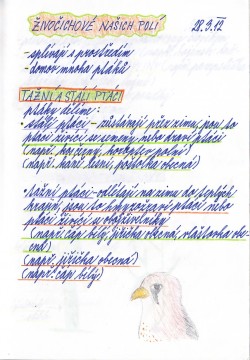 ŽIVOČICHOVÉ NAŠICH POLÍ 28.3.12
-splývají s prostředím
-domov mnoha ptáků
TAŽNÍ A STÁLÍ PTÁCI
ptáky dělíme:
• stálí ptáci - zůstávají přes zimu, jsou to
ptáci živící se semeny, nebo draví ptáci
(např. koroptev polní)
(např. káně lesní, poštolka obecná)
• tažní ptáci - odlétají na zimu do teplých
krajin, jsou to hmyzožraví ptáci nebo
ptáci živící se obojživelníky
(např. čáp bílý, jiřička obecná, vlaštovka obe-
cná)
(např. jiřička obecná)
(např. čáp bílý)